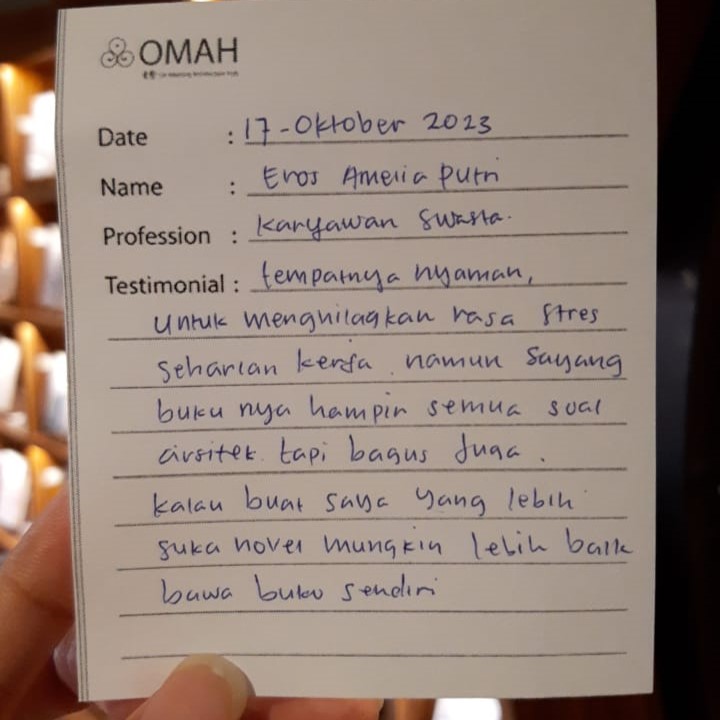 OMAH
Date : 17-Oktober 2023
Name : Eros Amelia Putri
Profession : Karyawan Swasta.
Testimonial : tempatnya nyaman,
untuk menghilagkan rasa stres
seharian kerja. namun sayang
buku nya hampir semua soal
airsitek. tapi bagus juga.
kalau buat saya yang lebih
suka novel mungkin lebih baik
bawa buku sendiri